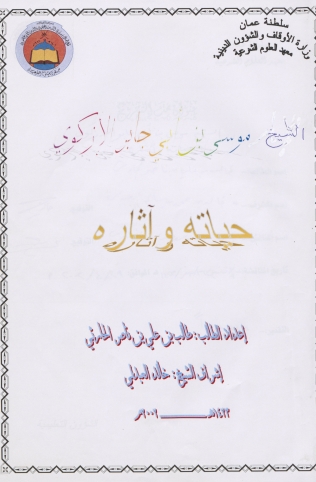 سلطنة عمان
وزارة الأوقاف والشؤون الدينية
معهد العلوم الشرعية
الشيخ موسى بن أبي جابر الأزكوي
حياته وآثاره
إعداد الطالب: طالب بن علي بن ناصر
إشراف الشيخ: خالد العبدلي